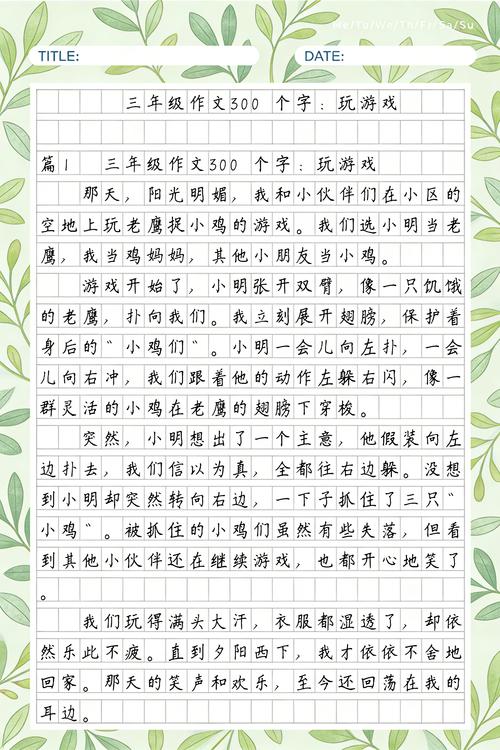 Me/Tu/We/Th/Fr/Sa/Su
TITLE:
DATE:
三年级作文300 个字：玩游戏
篇1 三年级作文300 个字：玩游戏
那天，阳光明媚，我和小伙伴们在小区的
空地上玩老鹰捉小鸡的游戏。我们选小明当老
鹰，我当鸡妈妈，其他小朋友当小鸡。
游戏开始了，小明张开双臂，像一只饥饿
的老鹰，扑向我们。我立刻展开翅膀，保护着
身后的“小鸡们”。小明一会儿向左扑，一会
儿向右冲，我们跟着他的动作左躲右闪，像一
群灵活的小鸡在老鹰的翅膀下穿梭。
突然，小明想出了一个主意，他假装向左
边扑去，我们信以为真，全都往右边躲。没想
到小明却突然转向右边，一下子抓住了三只“
小鸡”。被抓住的小鸡们虽然有些失落，但看
到其他小伙伴还在继续游戏，也都开心地笑了
。
我们玩得满头大汗，衣服都湿透了，却依
然乐此不疲。直到夕阳西下，我才依依不舍地
回家。那天的笑声和欢乐，至今还回荡在我的
耳边。